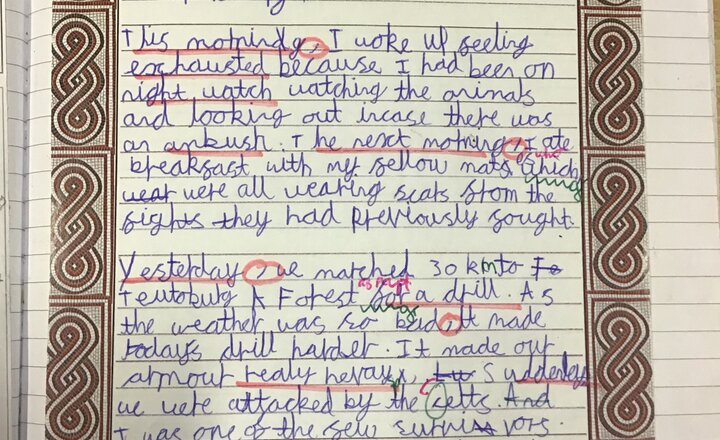 This morning, I woke up feeling
exhausted because I had been on
night watch watching the animals
and looking out incase there was
an ambush. The next morning, I ate
breakfast with my fellow mats who
were all wearing scars from the
fights they had previously fought.
Yesterday, we marched 30 km to
Teutoburg Forest as part a drill. As
the weather was so bad, it made
todays drill harder. It made our
armour realy heravy, Suddenley
we were attacked by the Celts. And
I was one of the few survivors.